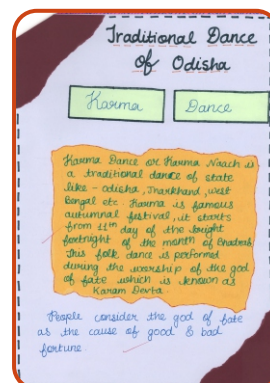 Traditional Dance
of Odisha
Karma
Dance
Karma Dance or Karma Naach is
a traditional dance of state
like - odisha, Jharkhand, west
Bengal etc. Karma is famous
autumnal festival, it starts
from 11th day of the bright
fortnight of the month of Bhadrab
This folk dance is performed
during the worship of the god
of fate which is known as
Karam Devta.
People consider the god of fate
as the cause of good & bad
fortune.